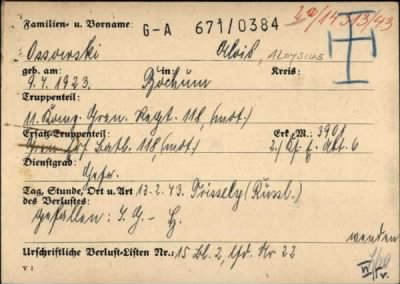 Familien- u. Vorname: G-A 671/0384
Ossowski Alois, ALOYSIUS
geb. am: in: Kreis:
9.7.1923. Bochum
Truppenteil:
11. Komp. Gren. Regt. 118, (mot.)
Ersatz-Truppenteil: Erk M.: 3901
Gren. Ers. Batl. 118, (mot.)
Dienstgrad
Gefr.
Tag, Stunde, Ort u. Art 13.2.43. (Russl.)
des Verlustes:
gefallen: I.G. -
wenden
Urschriftliche Verlust-Listen Nr.: 15 Bl. 2, lfd. Nr 22
V 1